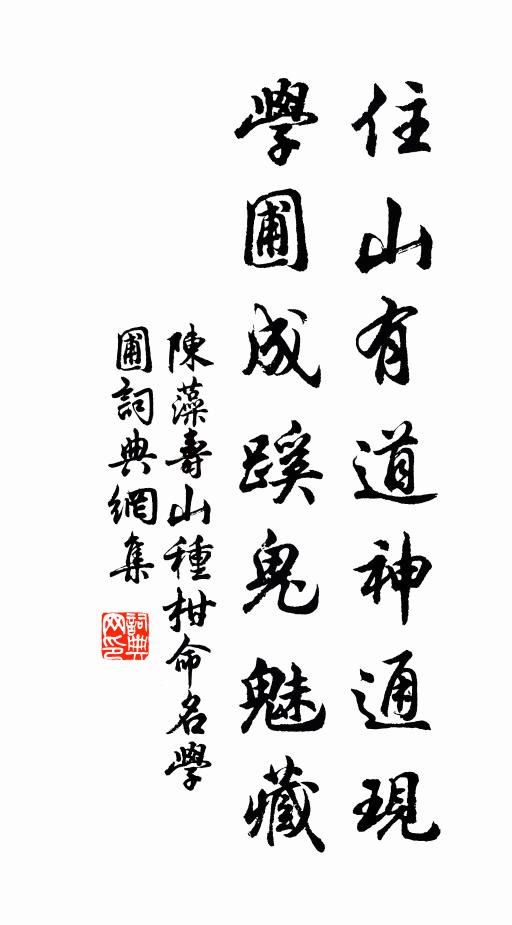 住山有道神通現
學圃成蹊鬼魅藏
陳藻壽山種柑命名學
圃詞典網集
詞典
网印